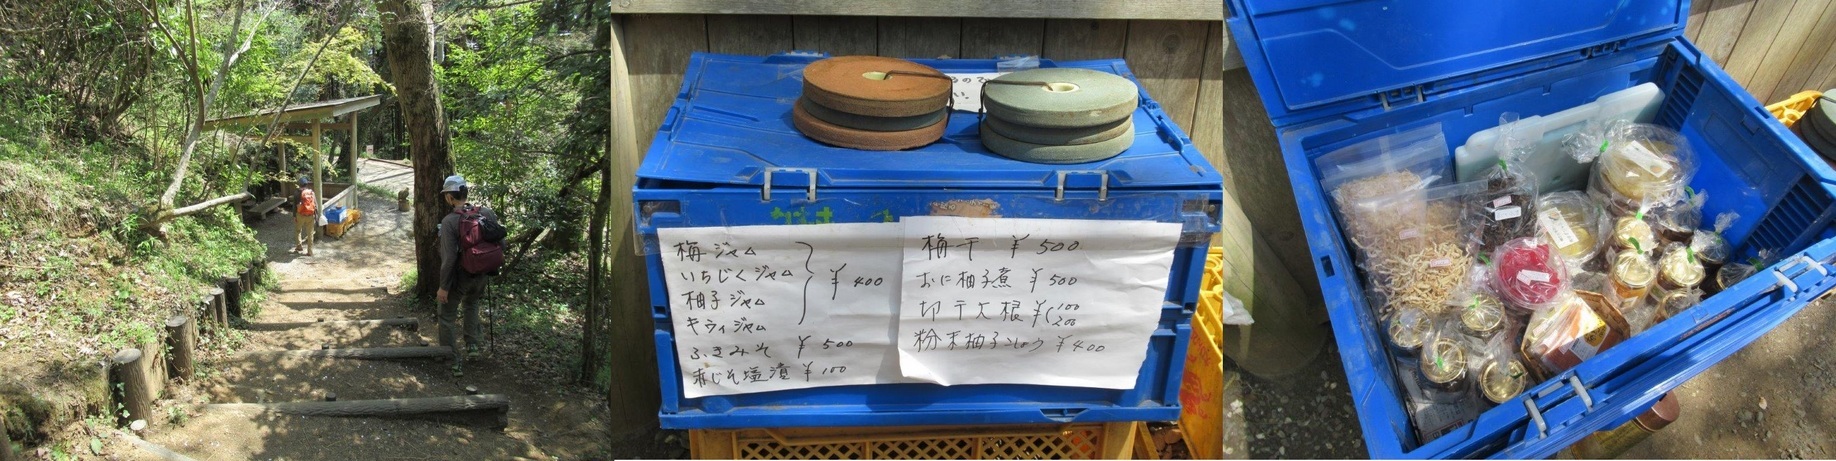 梅ジャム
いちじくジャム
柚子ジャム
キウイジャム
¥400
ふきみそ ¥500
赤じそ塩漬 ¥100
梅干 ¥500
おに柚子煮 ¥500
切干大根 ¥100
200
粉末柚子こしょう ¥400